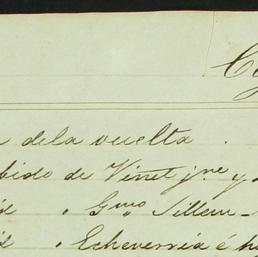 dela vuelta.
bido de Vinet jne y
" Gmo Sillem
" Echeverria é h